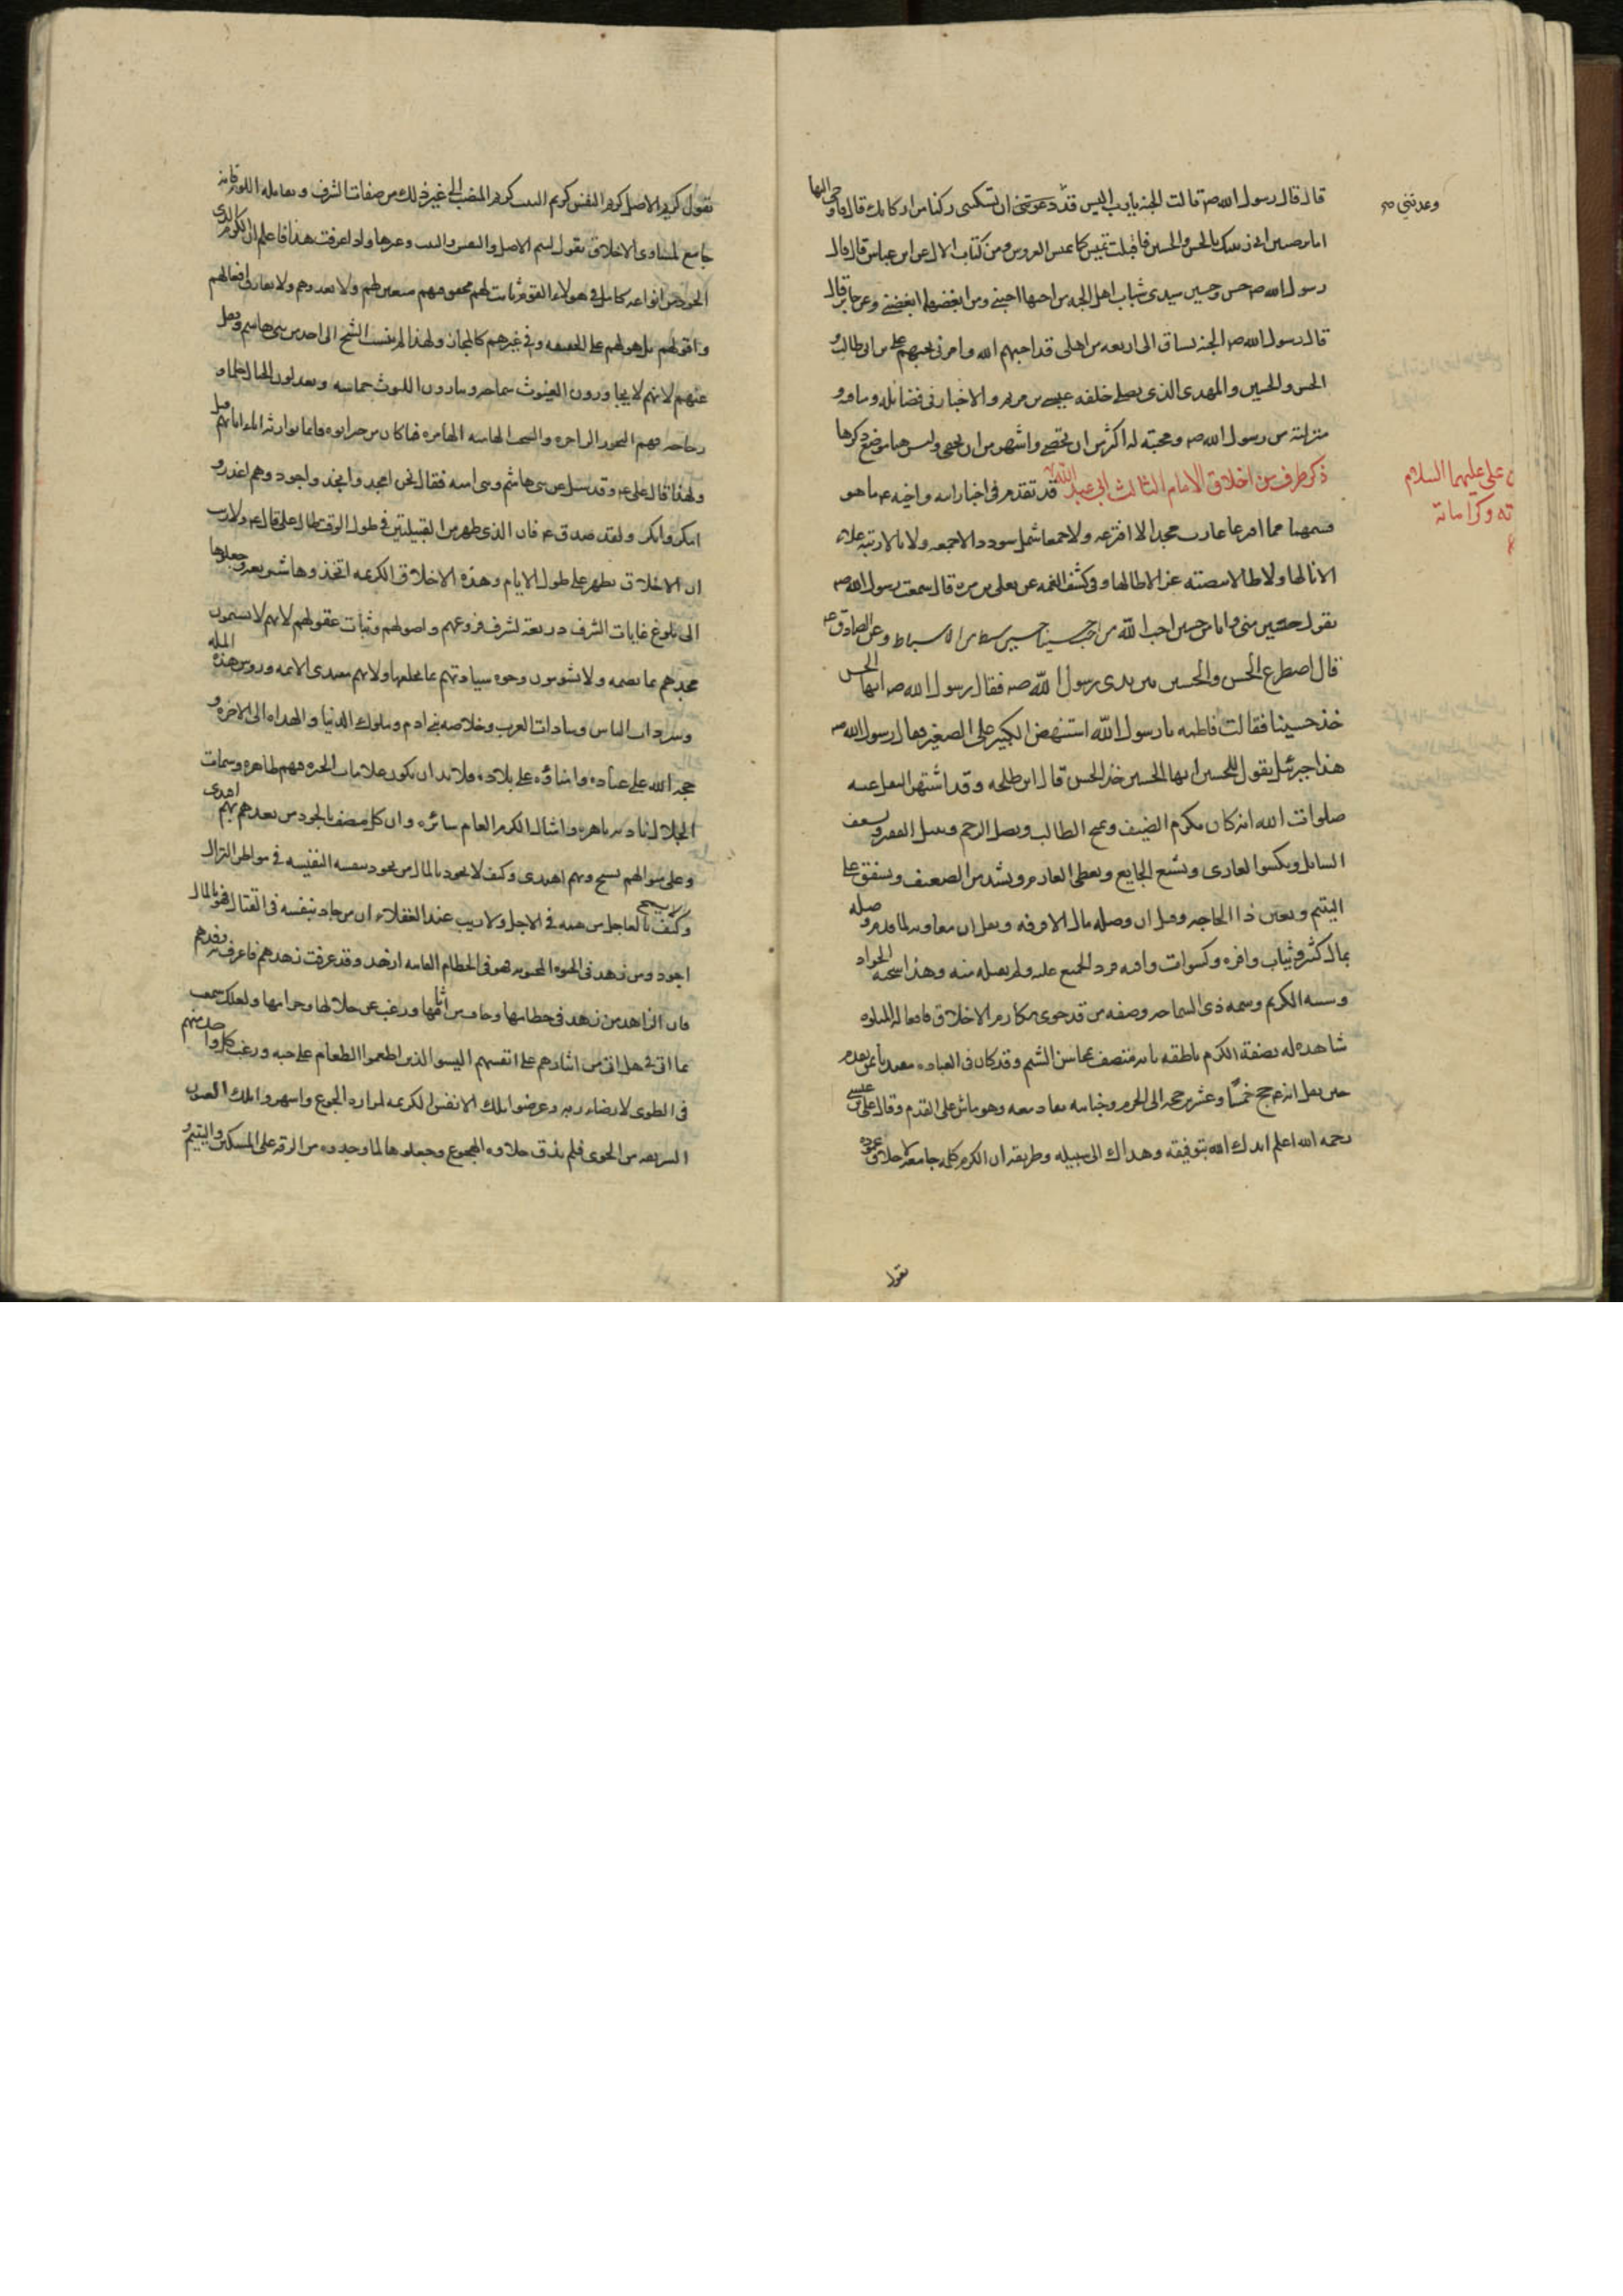 قال قال رسول الله صم قالت الجنه يا رب اليس قد وعدتني ان تسكنى ركنا من اركانك قال فاوحى اليها
وعدتني صم
اما ترضين اني زينتك بالحسن والحسين فاقبلت تميس كما تميس العروس ومن كتاب الال عن ابن عباس قال قال
رسول الله صم حسن وحسين سيدى شباب اهل الجنه من احبهما احبني ومن ابغضهما ابغضني وعن جابر قال
قال رسول الله صم الجنه تساق الى اربعه من اهلى قد احبهم الله وامرني بحبهم على بن ابى طالب و
الحسن والحسين والمهدى الذى يصلى خلفه عيسى بن مريم والاخبار فى فضائله وما ورد
منزلته من رسول الله صم ومحبته له اكثر من ان تحصى واشهر من ان تخفى وليس هنا موضع ذكرها
ذكر طرف من اخلاق الامام الثالث ابي عبد الله
قد تقدم فى اخبار امه واخيه ع ما هو
ن على عليهما السلام
ته وكراماته
الا نالها ولا طالا هضبة عز الا طالاها وفى كشف الغمه عن يعلى بن مره قال سمعت رسول الله صم
يقول حسين منى وانا من حسين احب الله من احب حسينا حسين سبط من الاسباط وعن الصادق ع
قال اصطرع الحسن والحسين بين يدى رسول الله صم فقال رسول الله صم ايها الحسن
خذ حسينا فقالت فاطمه يا رسول الله استنهض الكبير على الصغير فقال رسول الله صم
هذا جبرئيل يقول للحسين ايها الحسين خذ الحسن قال ابن طلحه وقد اشتهر النقل عنه
صلوات الله انه كان يكرم الضيف ويمنح الطالب ويصل الرحم وينيل الفقير ويسعف
السائل ويكسوا العارى ويشبع الجايع ويعطى الغارم ويشد من الضعيف ويشفق على
اليتيم ويعين ذا الحاجه وقل ان وصله مال الا فرقه ونقل ان معاويه لما قدم وصله
بمال كثير وثياب وافره وكسوات وافيه فرد الجميع عليه ولم يقبله منه وهذا سجيه الجواد
وشنشنه الكريم وسمه ذى السماحه وصفه من قد حوى مكارم الاخلاق فافعاله المتلوه
شاهده له بصفة الكرم ناطقه بانه متصف بمحاسن الشيم وقد كان فى العباده مقتديا بمن تقدم
حتى نقل انه ع حج خمسا وعشرين حجه الى الحرم وجنائبه تقاد معه وهو ماش على القدم وقال على بن عيسى
رحمه الله اعلم ايدك الله بتوفيقه وهداك الى سبيله وطريقه ان الكرم كلمه جامعه لاخلاق محموده
تقول
تقول كريم الاصل كريم النفس كريم البيت كريم المنصب الى غير ذلك من صفات الشرف ويقابله اللوم فانه
جامع لمساوى الاخلاق تقول لئيم الاصل والنفس والبيت وغيرها واذا عرفت هذا فاعلم ان الكرم الذى
الجود من انواعه كامل فى هولاء القوم ثابت لهم محقق فيهم متعين لهم ولا يعدوهم ولا يفارق افعالهم
واقوالهم بل هو لهم على الحقيقه وفى غيرهم كالمجاز ولهذا لم ينسب الشح الى احد من بنى هاشم ولا نقل
عنهم لانهم يجارون الغيوث سماحه ويبارون الليوث حماسه ويعدلون الجبال حلما و
رجاحه فهم البحور الزاخره والسحب الهاميه الهامره فما كان من خير اتوه فانما توارثه اباء ابائهم قبل
ولهذا قال على ع وقد سئل عن بنى هاشم وبنى اميه فقال نحن امجد وانجد واجود وهم اغدر و
امكر وانكر ولقد صدق ع فان الذى ظهر من القبيلتين فى طول الوقت دال على ما قال ع ولا ريب
ان الاخلاق تظهر على طول الايام وهذه الاخلاق الكريمه اتخذوها شريعه وجعلوها
الى بلوغ غايات الشرف ذريعه لشرف فروعهم واصولهم وثبات عقولهم لانهم لا يشينون
مجدهم بما يصمه ولا يشوهون وجوه سيادتهم بما يخلقها ولانهم مقتدى الامه وروس هذه المله
وسروات الناس وسادات العرب وخلاصه بنى ادم وملوك الدنيا والهداه الى الاخره و
حجه الله على عباده وامناؤه على بلاده فلا بد ان يكون علامات الخير فيهم ظاهره وسمات
الجلال باديه باهره وامثال الكرم العام سائره وان كل متصف بالجود من بعدهم بهم اقتدى
وعلى منوالهم نسج وبهم اهتدى وكيف لا يجود بالمال من يجود بنفسه النفيسه فى مواطن النزال
وكيف لا يسمح بالعاجل من همه فى الاجل ولا ريب عند العقلاء ان من جاد بنفسه فى القتال فهو بالمال
اجود ومن زهد فى الحياه المحبوبه فهو فى الحطام الفانى ازهد وقد عرفت زهدهم فاعرف به رفدهم
فان الزاهد من زهد فى حطامها وخاف من اثامها ورغب عن حلالها وحرامها ولعلك سمعت
بما اتى فى هل اتى من ايثارهم على انفسهم اليسوا الذين اطعموا الطعام على حبه ورغب كل واحد منهم
فى الطوى لارضاء ربه وعرضوا تلك الانفس الكريمه لمراره الجوع واسهروا تلك العيون
الشريفه من الخوى فلم تذق حلاوه الهجوع وجعلوها لما وجدوه من الرقه على المسكين واليتيم و